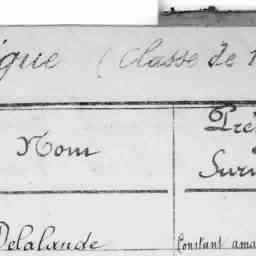 ique (Classe de 1
Nom
Pré
Surn
Delalande
Constant ama